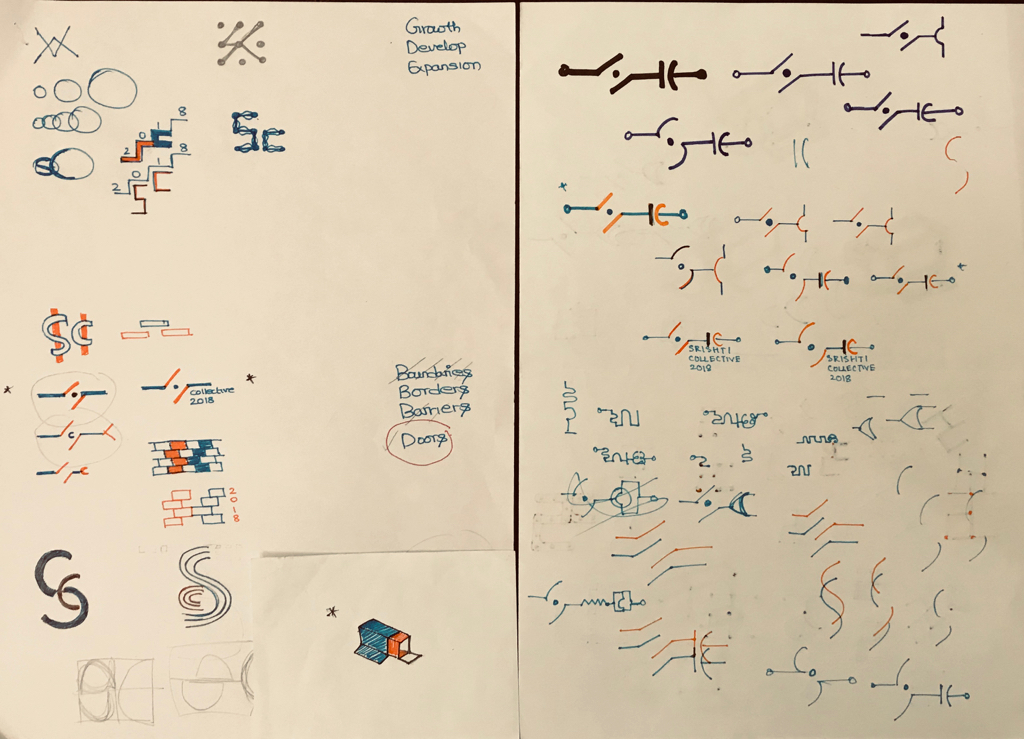 Growth
Develop
Expansion
8
0
2
8
0
2
SC
SC
collective
2018
Boundries
Borders
Barriers
Doors
2
0
1
8
SRISHTI
COLLECTIVE
2018
SRISHTI
COLLECTIVE
2018